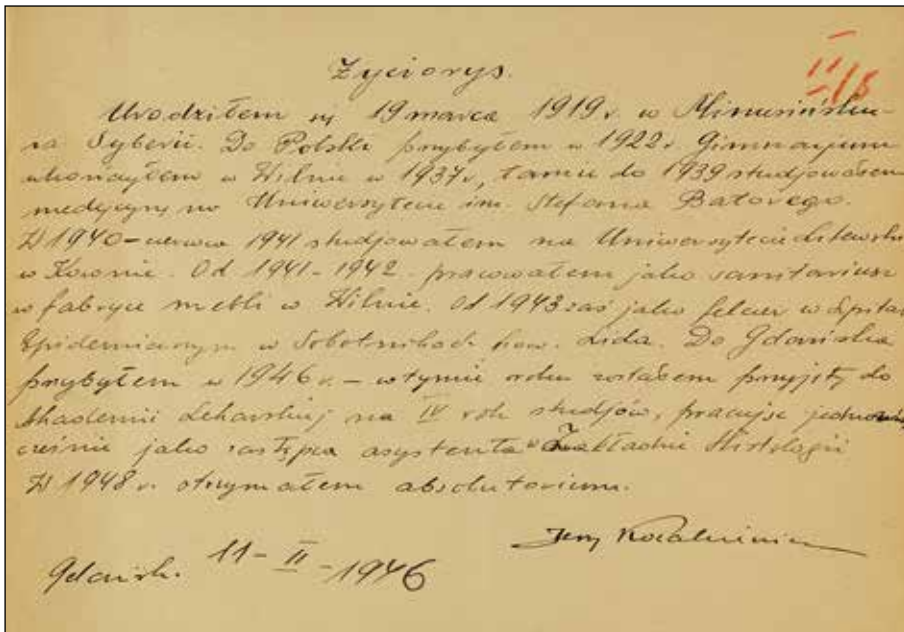 II/5
Życiorys.
Urodziłem się 19 marca 1919 r. w Minusińsku
na Syberii. Do Polski przybyłem w 1922 r. Gimnazjum
ukończyłem w Wilnie w 1937 r., tamże do 1939 studjowałem
medycynę na Uniwersytecie im. Stefana Batorego.
W 1940 – czerwca 1941 studjowałem na Uniwersytecie Litewskim
w Kownie. Od 1941 – 1942 pracowałem jako sanitariusz
w fabryce mebli w Wilnie. Od 1943 zaś jako felczer w Szpitalu
Epidemicznym w Sobotnikach pow. Lida. Do Gdańska
przybyłem w 1946 r. – w tymże roku zostałem przyjęty do
Akademii Lekarskiej na IV rok studjów, pracując jednocześnie
jako zastępca asystenta w Zakładzie Histologii
W 1948 r. otrzymałem absolutorium.
Jerzy
Gdańsk. 11 – II – 1946